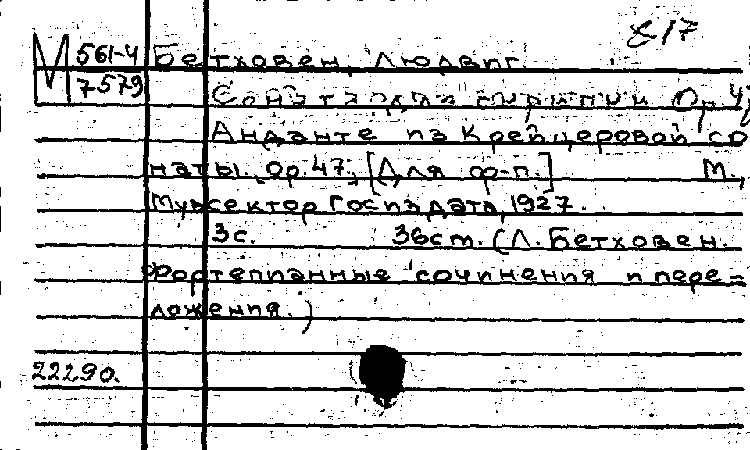 817
М 561-4 Бетховен, Людвиг.
7579 Соната для скрипки Op. 47
Анданте из Крейцеровой со
наты. Op. 47. [Для ф-п.] М.,
Музсектор Госиздата, 1927.
3с. 36 ст. (Л. Бетховен.
Фортепианные сочинения и пере=
ложения.)
22290.